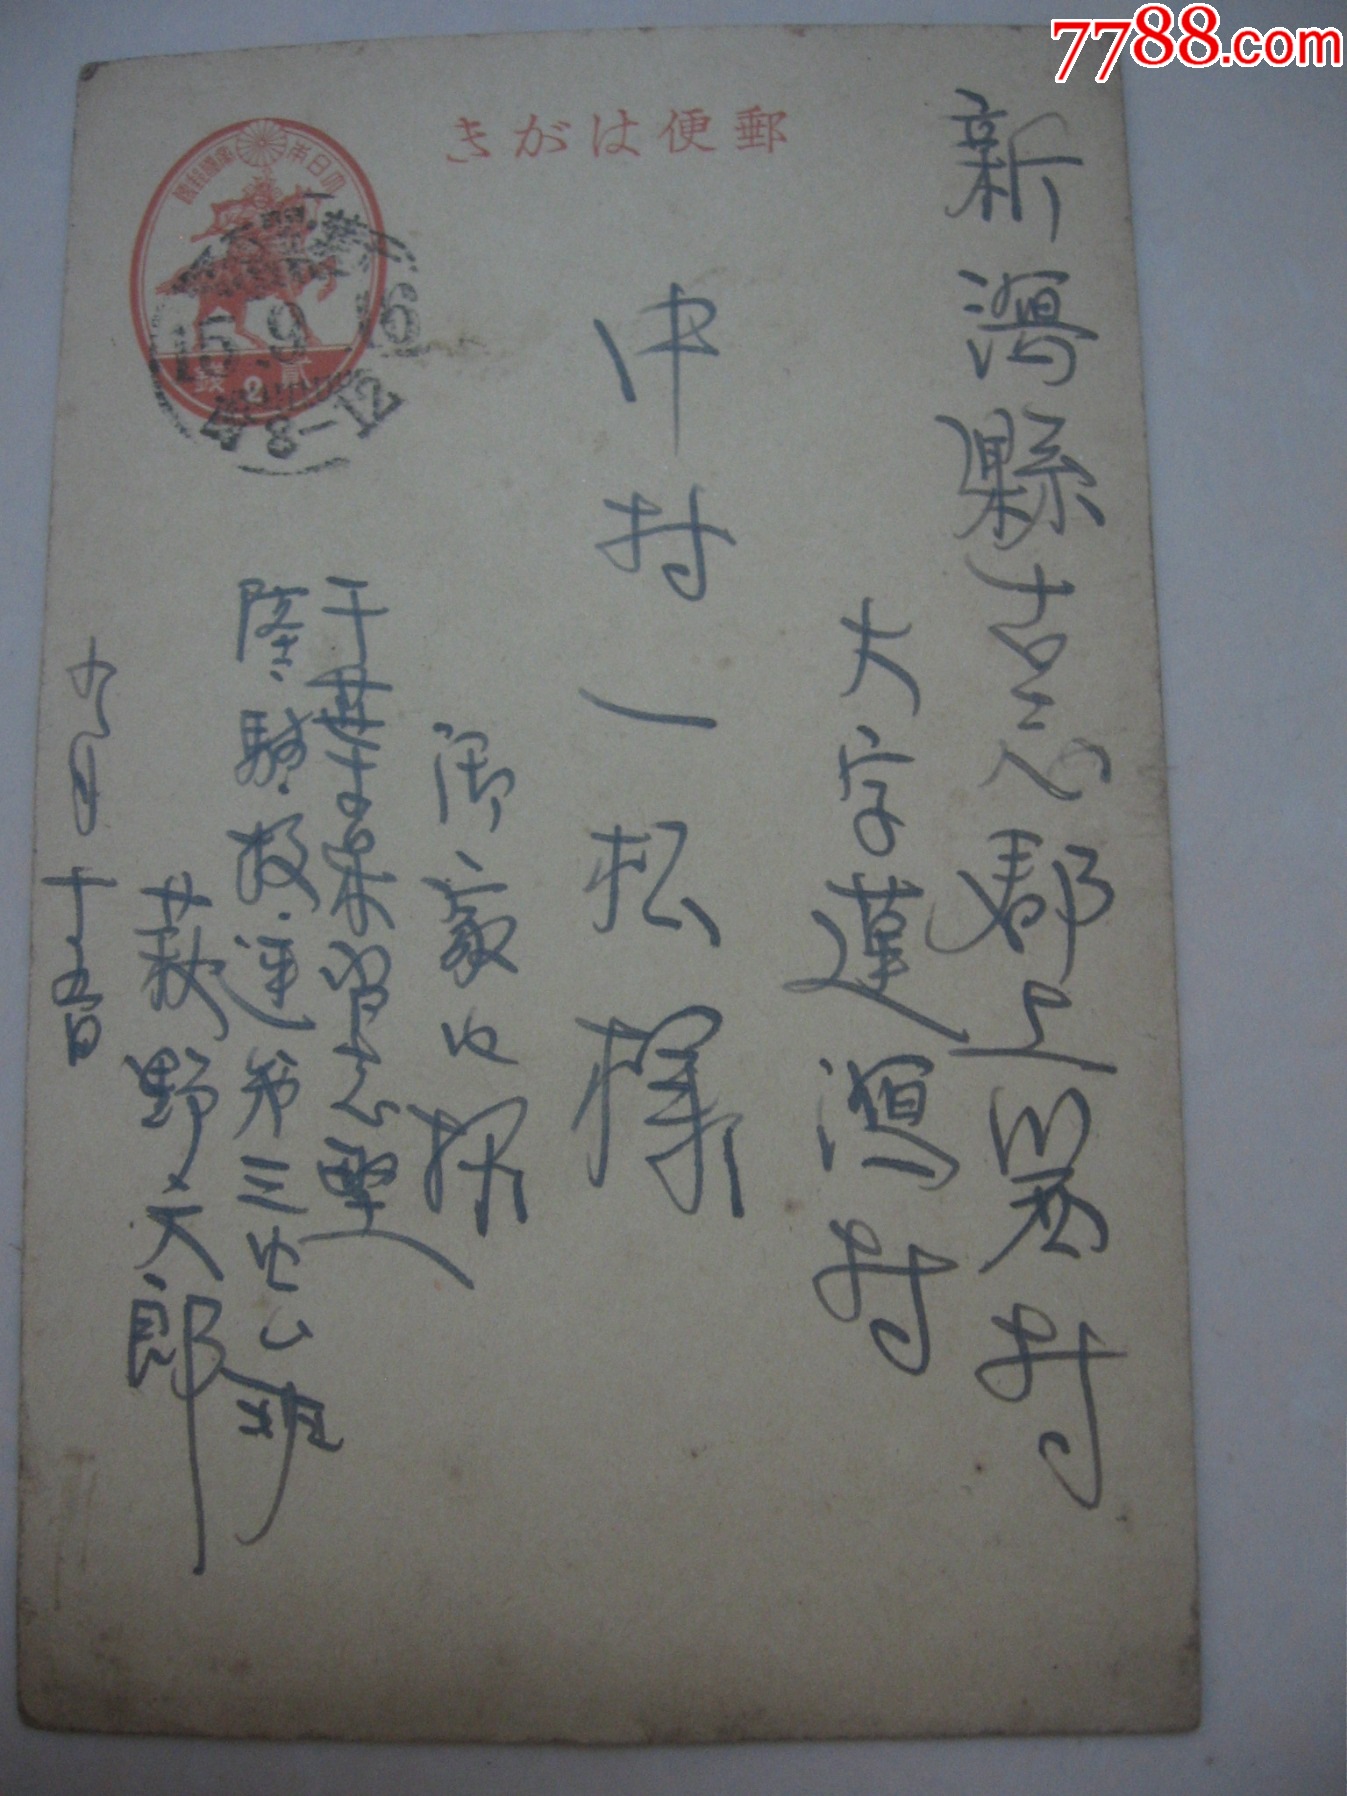 7788.com
郵便はがき
大日本帝國郵便
貳銭
2
15.9.16
后8-12
新潟縣古志郡上組村
大字蓮潟村
中村一松様
御一家内様
千葉市
陸・騎・校・連第三中山班
荻野文郎
九月十五日